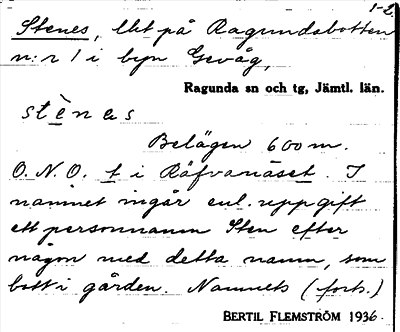 1-2.
Stenes, lht på Ragundabotten
n:r 1 i byn Gevåg,
Ragunda sn och tg, Jämtl. län.
stènas
Belägen 600 m.
O.N.O. t i Räfvanäset. I
namnet ingår enl. uppgift
ett personnamn Sten efter
någon med detta namn, som
bott i gården. Namnets (forts.)
BERTIL FLEMSTRÖM 1936